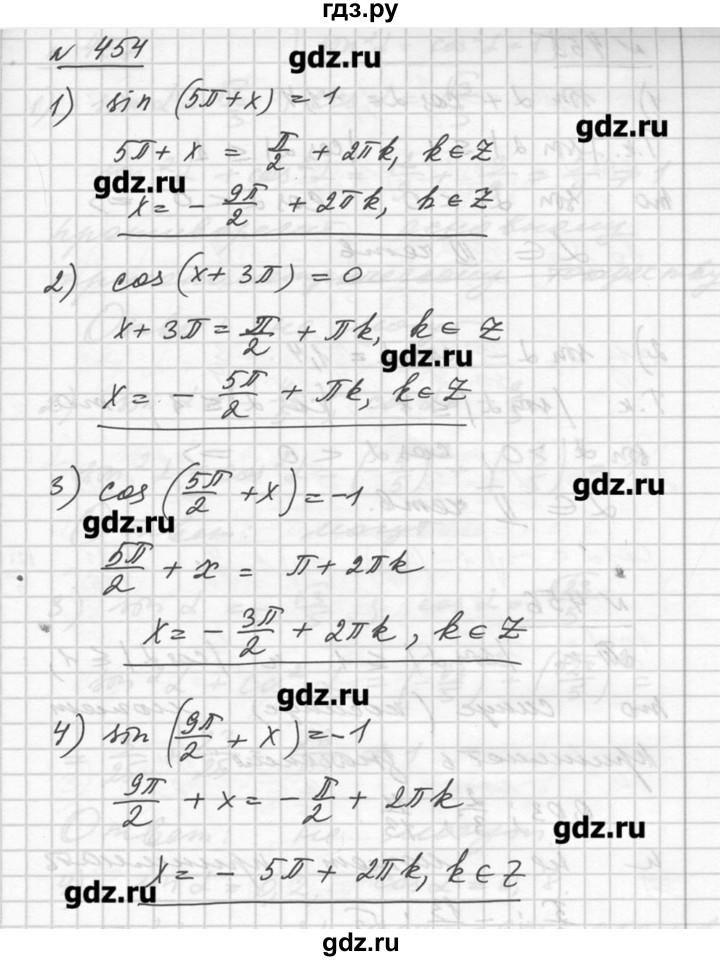 гдз.ру
№ 454
gdz.ru
1) sin (5π+x) = 1
gdz.ru
5π + x = π/2 + 2πk, k ∈ Z
gdz.ru
x = - 9π/2 + 2πk, k ∈ Z
2) cos (x + 3π) = 0
x + 3π = π/2 + πk, k ∈ Z
gdz.ru
x = - 5π/2 + πk, k ∈ Z
3) cos (5π/2 + x) = -1
gdz.ru
gdz.ru
5π/2 + x = π + 2πk
x = - 3π/2 + 2πk, k ∈ Z
gdz.ru
4) sin (9π/2 + x) = -1
9π/2 + x = - π/2 + 2πk
gdz.ru
x = - 5π + 2πk, k ∈ Z
gdz.ru
gdz.ru